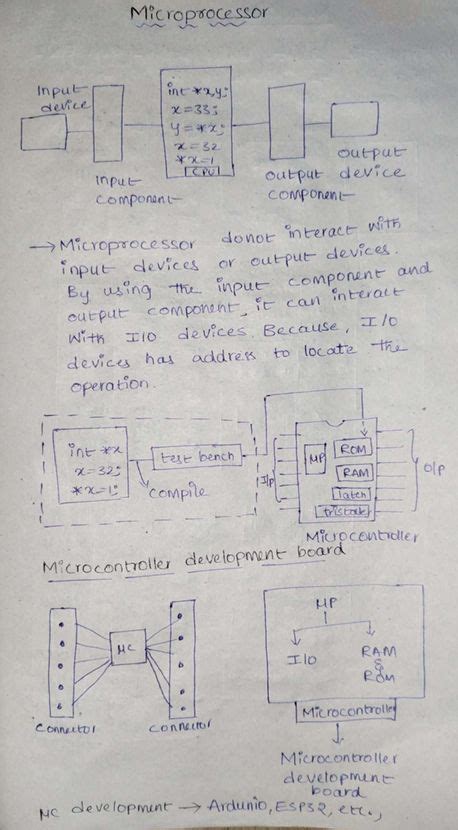 Microprocessor
Input
device
int *x,y;
x=33;
y=*x;
x=32
*x=1
CPU
input
component
output device
component
output
device
→ Microprocessor donot interact with
input devices or output devices.
By using the input component and
output component, it can interact
with I/O devices. Because, I/O
devices has address to locate the
operation.
int *x
x=32;
*x=1;
test bench
compile
I/p
MP
ROM
RAM
latch
tristate
O/p
Microcontroller
Microcontroller development board
MC
connector
connector
MP
I/O
RAM
&
ROM
Microcontroller
Microcontroller
development
board
MC development → Ardunio, ESP32, etc.,